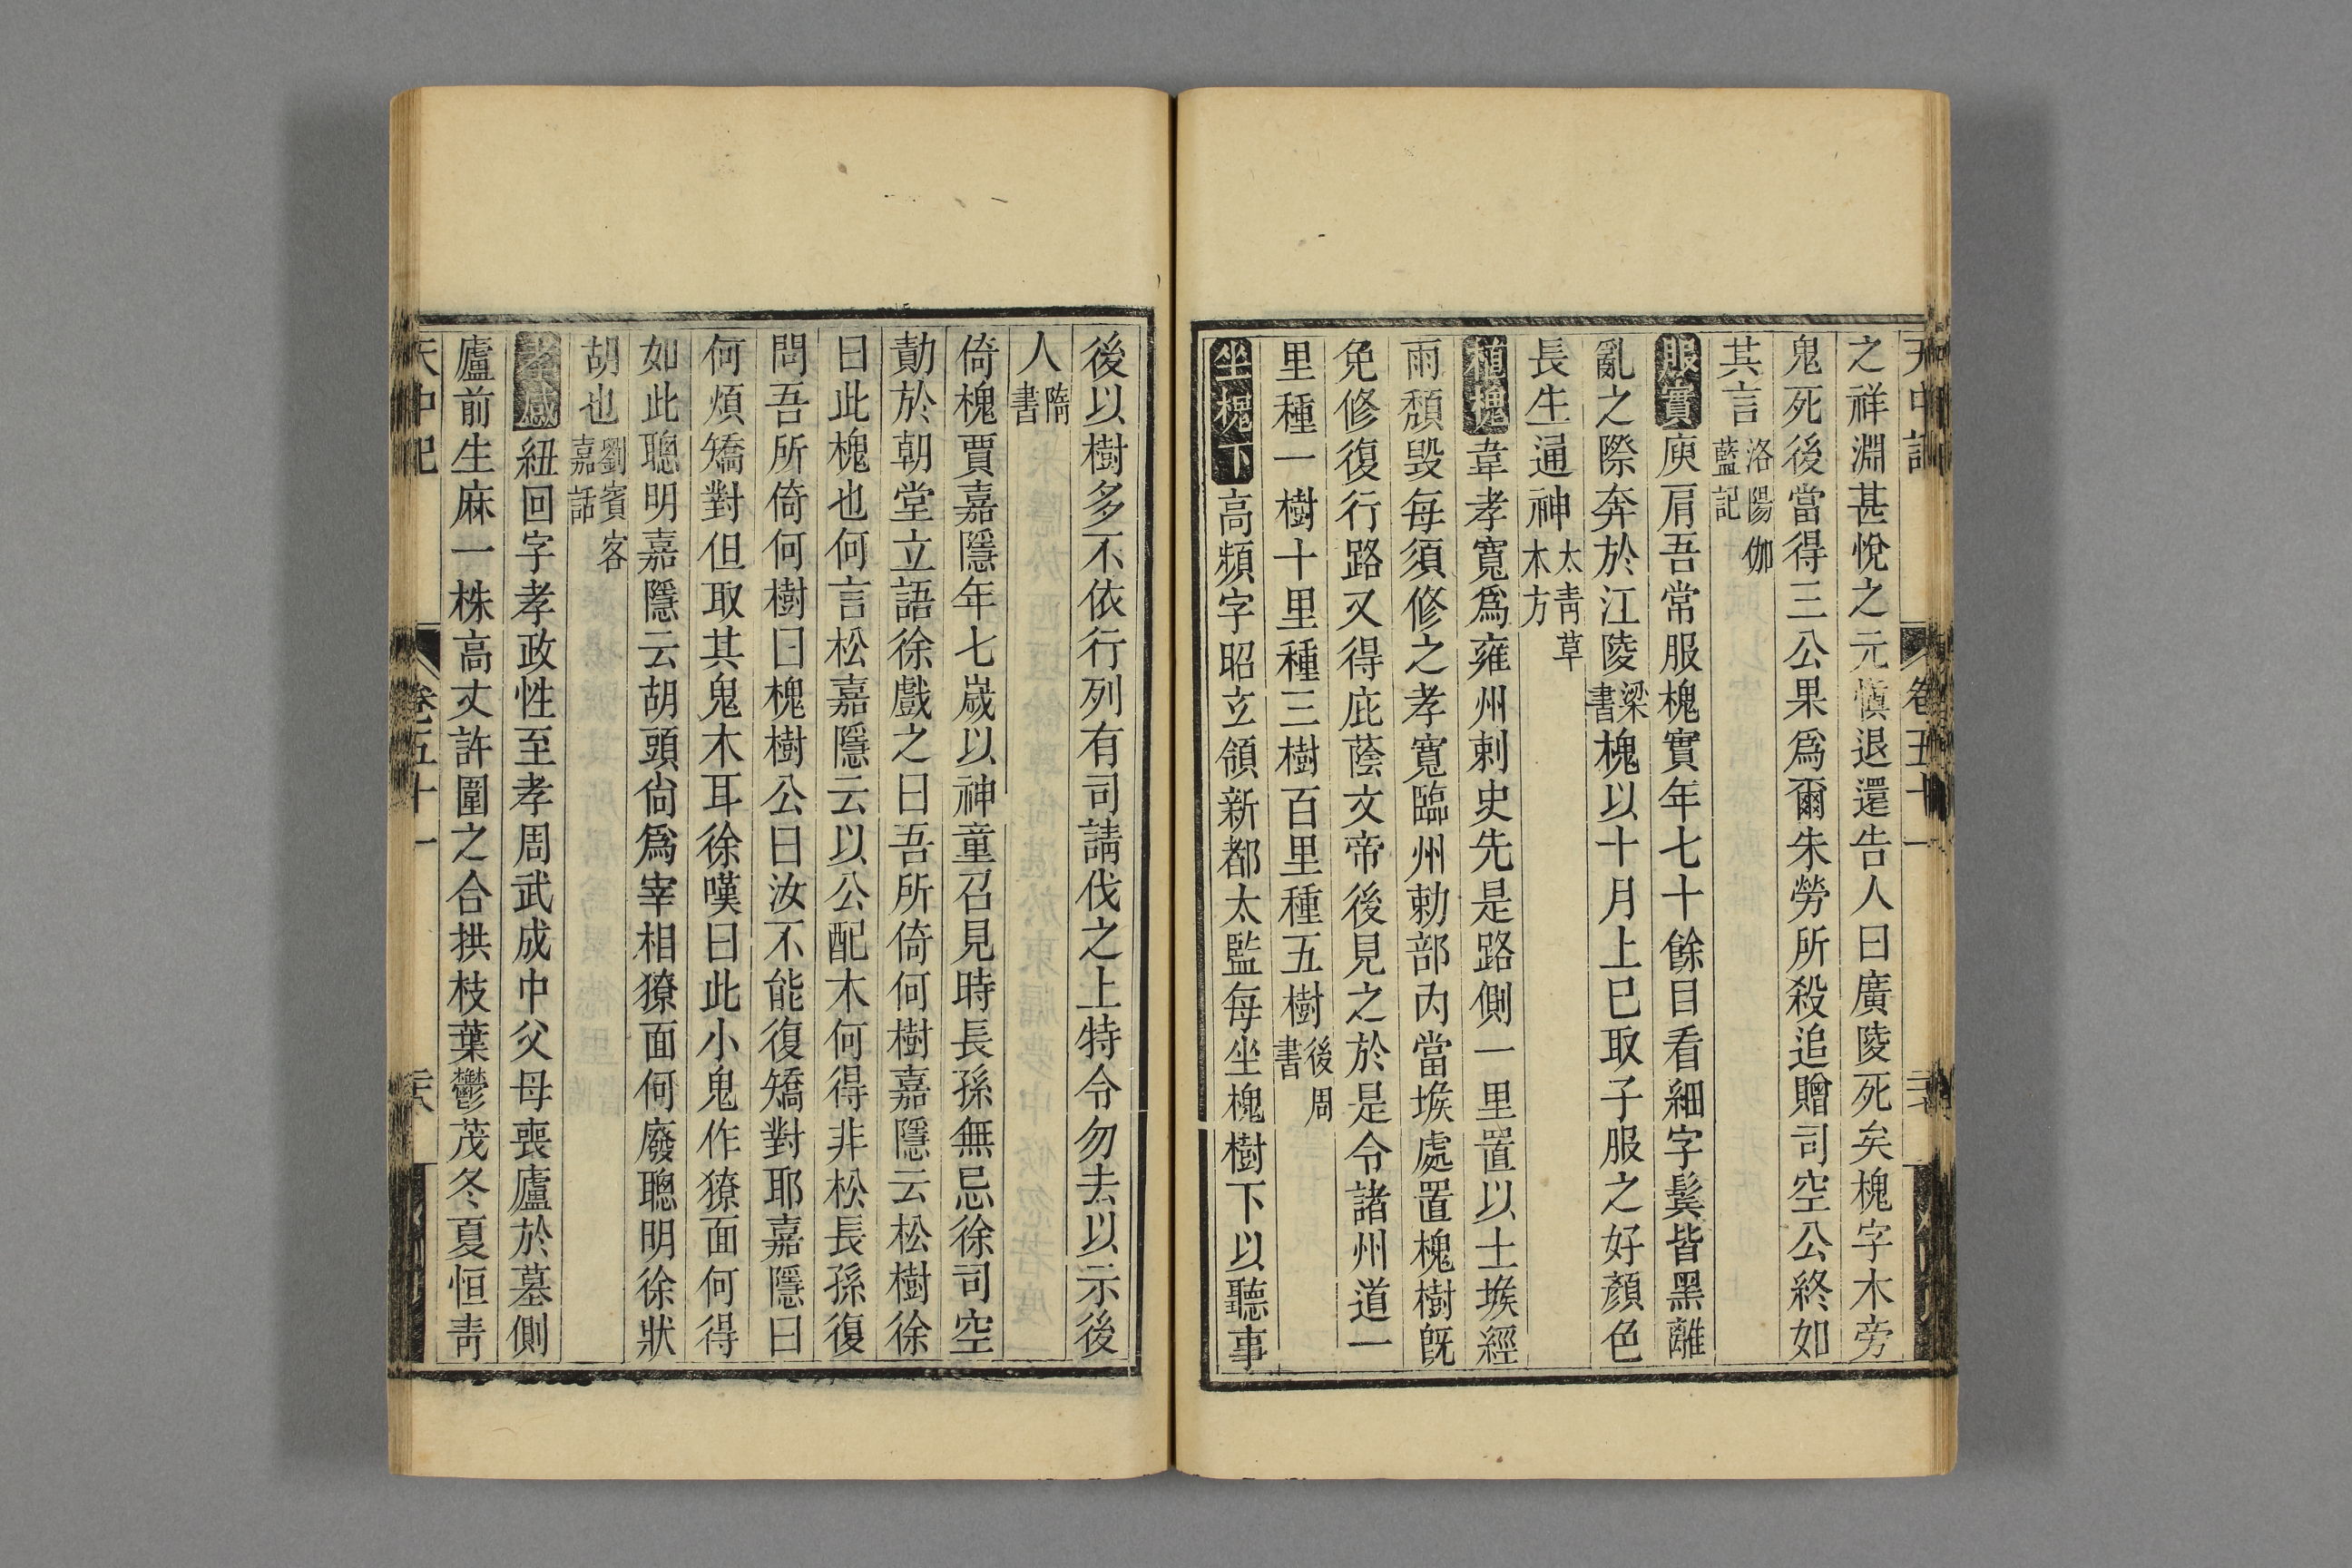 天中記 卷五十一
之祥淵甚悅之元慎退還告人曰廣陵死矣槐字木旁
鬼死後當得三公果爲爾朱勞所殺追贈司空公終如
其言洛陽伽藍記
服實庾肩吾常服槐實年七十餘目看細字鬓皆黑離
亂之際奔於江陵梁書槐以十月上巳取子服之好顏色
長生通神太青草木方
植槐韋孝寬爲雍州刺史先是路側一里置以土堠經
雨頹毀每須修之孝寬臨州勅部內當堠處置槐樹旣
免修復行路又得庇蔭文帝後見之於是令諸州道一
里種一樹十里種三樹百里種五樹後周書
坐槐下高頻字昭玄領新都太監每坐槐樹下以聽事
後以樹多不依行列有司請伐之上特令勿去以示後
人隋書
倚槐賈嘉隱年七嵗以神童召見時長孫無忌徐司空
勣於朝堂立語徐戲之曰吾所倚何樹嘉隱云松樹徐
曰此槐也何言松嘉隱云以公配木何得非松長孫復
問吾所倚何樹曰槐樹公曰汝不能復矯對耶嘉隱曰
何煩矯對但取其鬼木耳徐嘆曰此小鬼作獠面何得
如此聰明嘉隱云胡頭尙爲宰相獠面何廢聰明徐狀
胡也劉賓客嘉話
孝感紐回字孝政性至孝周武成中父母喪廬於墓側
廬前生麻一株高丈許圍之合拱枝葉鬱茂冬夏恒青
天中記 卷五十一